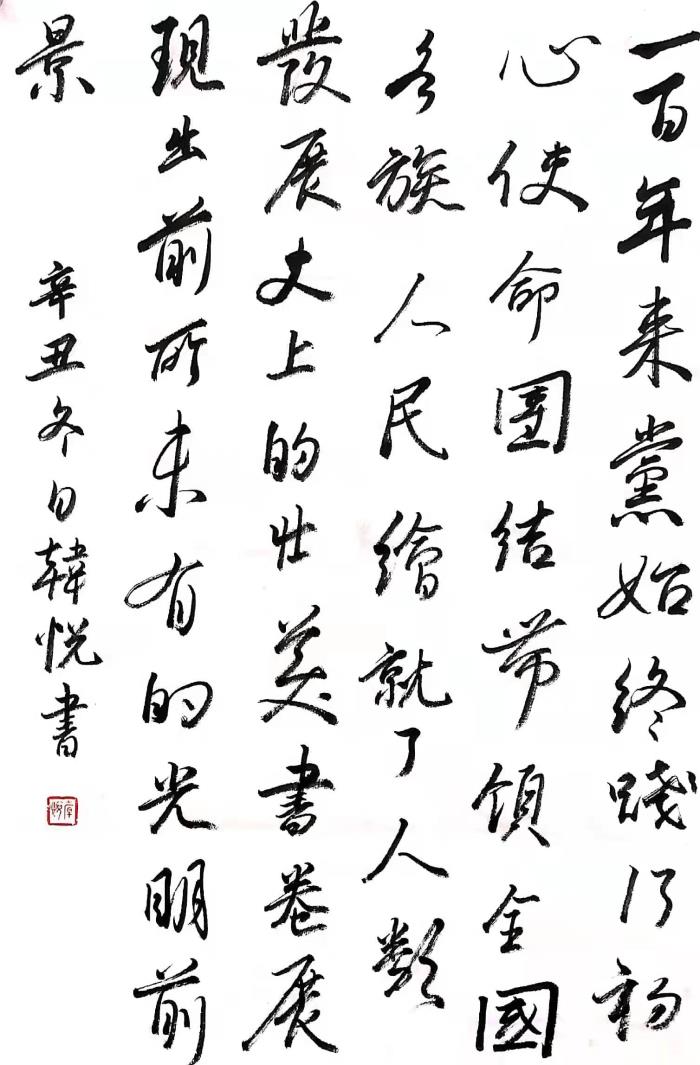 一百年来黨始终踐行初
心使命團结带領全國
各族人民繪就了人類
發展史上的壮美書卷展
現出前所未有的光明前
景
辛丑冬日韓悦書